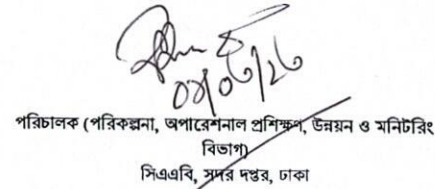 পরিচালক (পরিকল্পনা, অপারেশনাল প্রশিক্ষণ, উন্নয়ন ও মনিটরিং
বিভাগ)
সিএএবি, সদর দপ্তর, ঢাকা